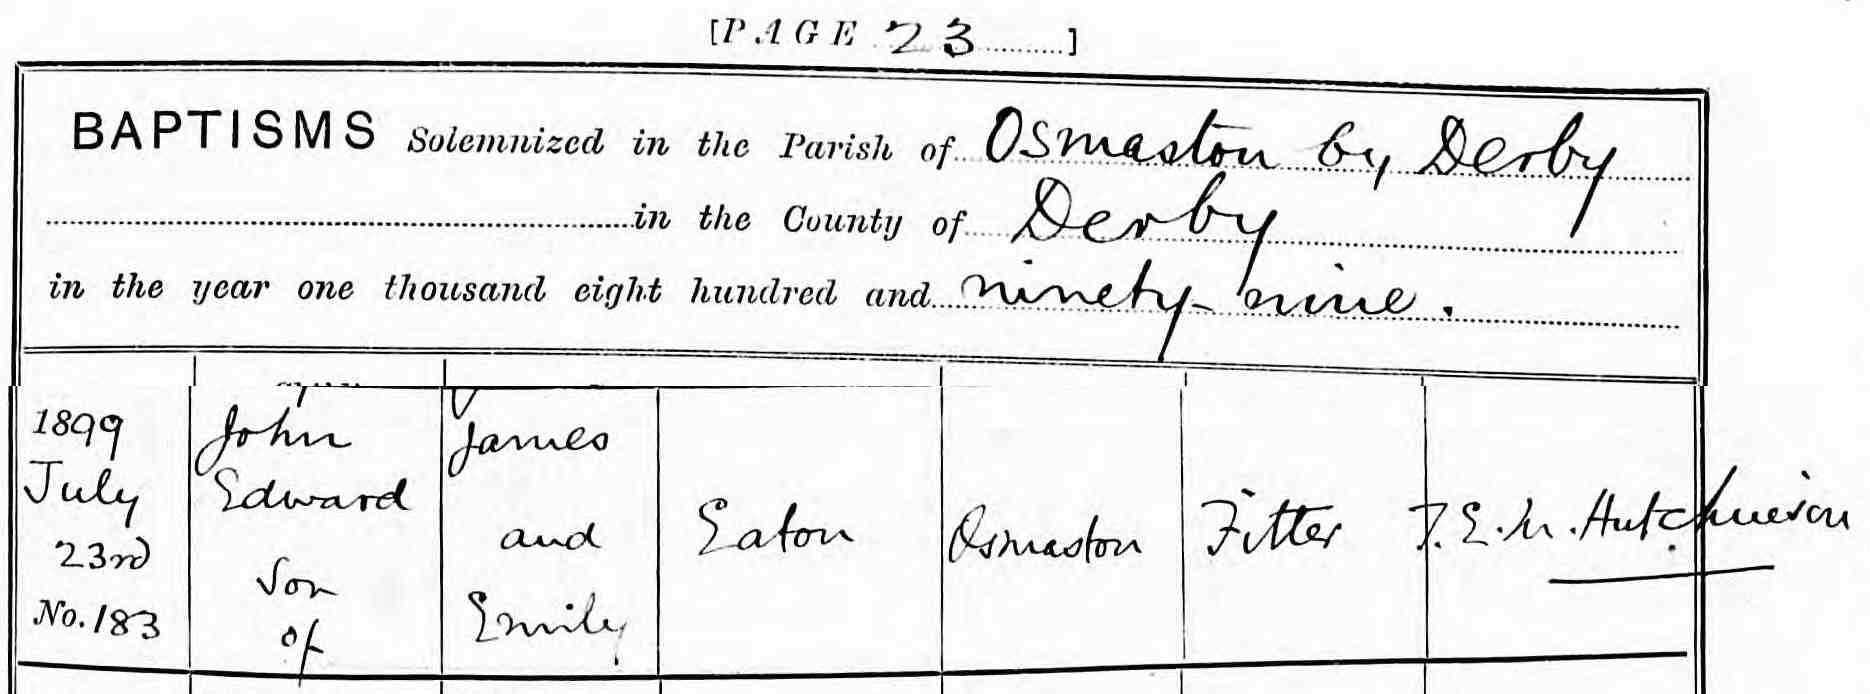 [PAGE 23]
BAPTISMS Solemnized in the Parish of Osmaston by Derby
in the County of Derby
in the year one thousand eight hundred and ninety-nine.
1899
July
23rd
No. 183
John
Edward
Son
of
James
and
Emily
Eaton
Osmaston
Fitter
T. E. M. Hutchinson